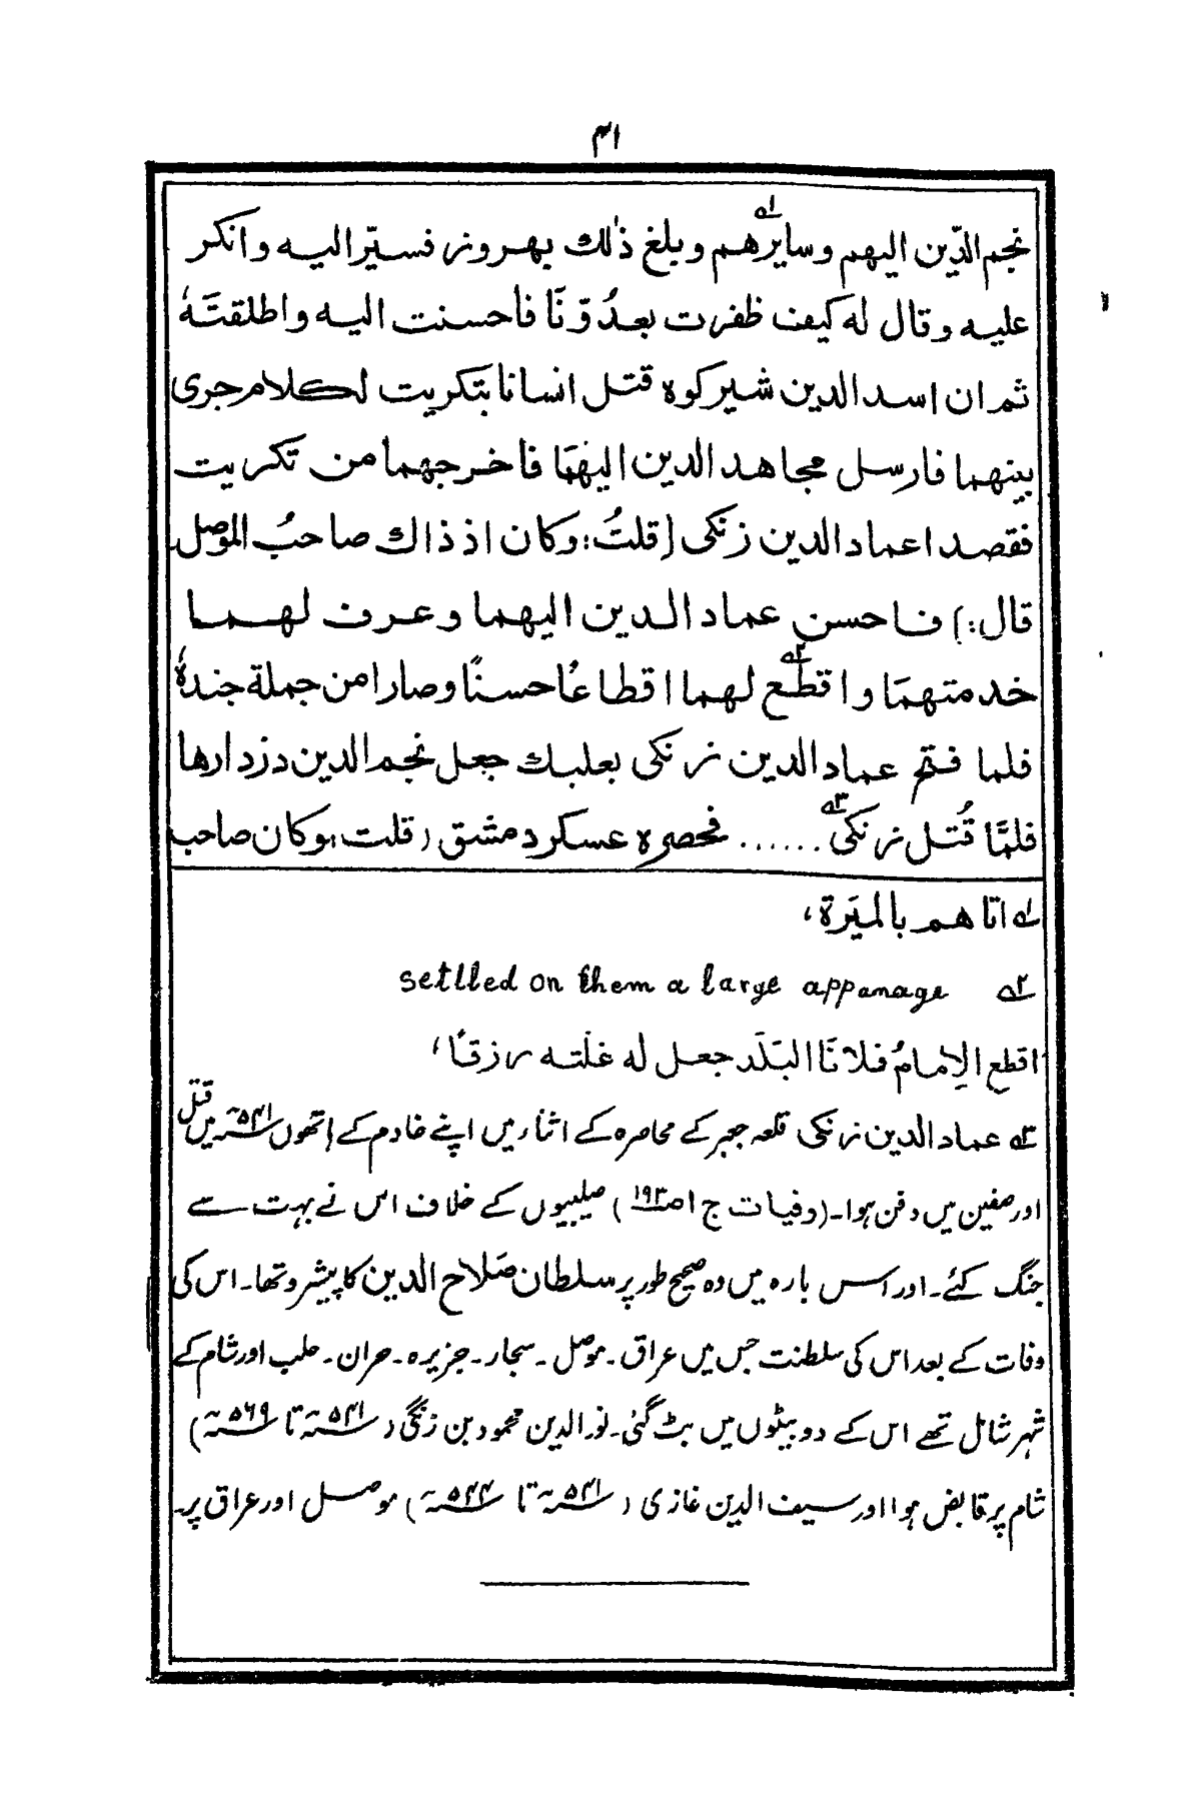 ۳۱
نجم الدّین الیهم وسایرهم ؎۱ وبلغ ذٰلك بهروز فسیّر الیه وانکر
علیه وقال له کیف ظفرت بعدُوّنَا فأحسنت الیه واطلقتَهٗ
ثم ان اسد الدین شیرکوه قتل انسانا بتکریت لکلام جری
بینهما فارسل مجاهد الدین الیهمَا فاخرجهما من تکریت
فقصدا عماد الدین زنکی (قلتُ: وکان اذ ذاك صاحبُ الموصل
قال:) فاحسن عماد الدین الیهما وعرف لهما
خدمتهمَا واقطع ؎۲ لهما اقطاعًا حسنًا وصارا من جملة جندهٗ
فلما فتح عماد الدین زنکی بعلبك جعل نجم الدین دزدارها
فلمَّا قُتل زنکی ؎۳ ...... فحصره عسکر دمشق (قلت: وکان صاحب
؎۱ اتاهم بالمیَرة،
؎۲ setlled on them a large appanage
اقطع الاِمامُ فلانًا البَلَد جعل له غلّته رزقًا،
؎۳ عماد الدین زنکی قلعہ جعبر کے محاصرہ کے اثناء میں اپنے خادم کے ہاتھوں ۵۴۱؁ھ میں قتل
اور صفین میں دفن ہوا۔ (وفیات ج ۱ ص ۱۹۳) صلیبیوں کے خلاف اس نے بہت سے
جنگ کئے۔ اور اس بارہ میں وہ صحیح طور پر سلطان صلاح الدین کا پیشرو تھا۔ اس کی
وفات کے بعد اس کی سلطنت جس میں عراق۔ موصل۔ سنجار۔ جزیرہ۔ حران۔ حلب اور شام کے
شہر شامل تھے اس کے دو بیٹوں میں بٹ گئی۔ نور الدین محمود بن زنگی (۵۴۱؁ھ تا ۵۶۹؁ھ)
شام پر قابض ہوا اور سیف الدین غازی (۵۴۱؁ھ تا ۵۴۴؁ھ) موصل اور عراق پر۔